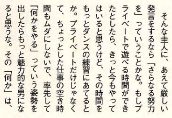 そんな圭人に、あえて厳しい
発言をするなら「さらなる努力
を」っていうことかな。もしプ
ライベートで遊べる時間ができ
たとしたら、今までよりも遊べて
はいると思うけど、その時間を
もっとダンスの練習にあてると
か。プライベートだけじゃなく
て、ちょっとした仕事の空き時
間もムダにしないで、率先して
「何かをやる」っていう姿勢を
出したらもっと魅力的な男にな
ると思うな。その「何か」は、